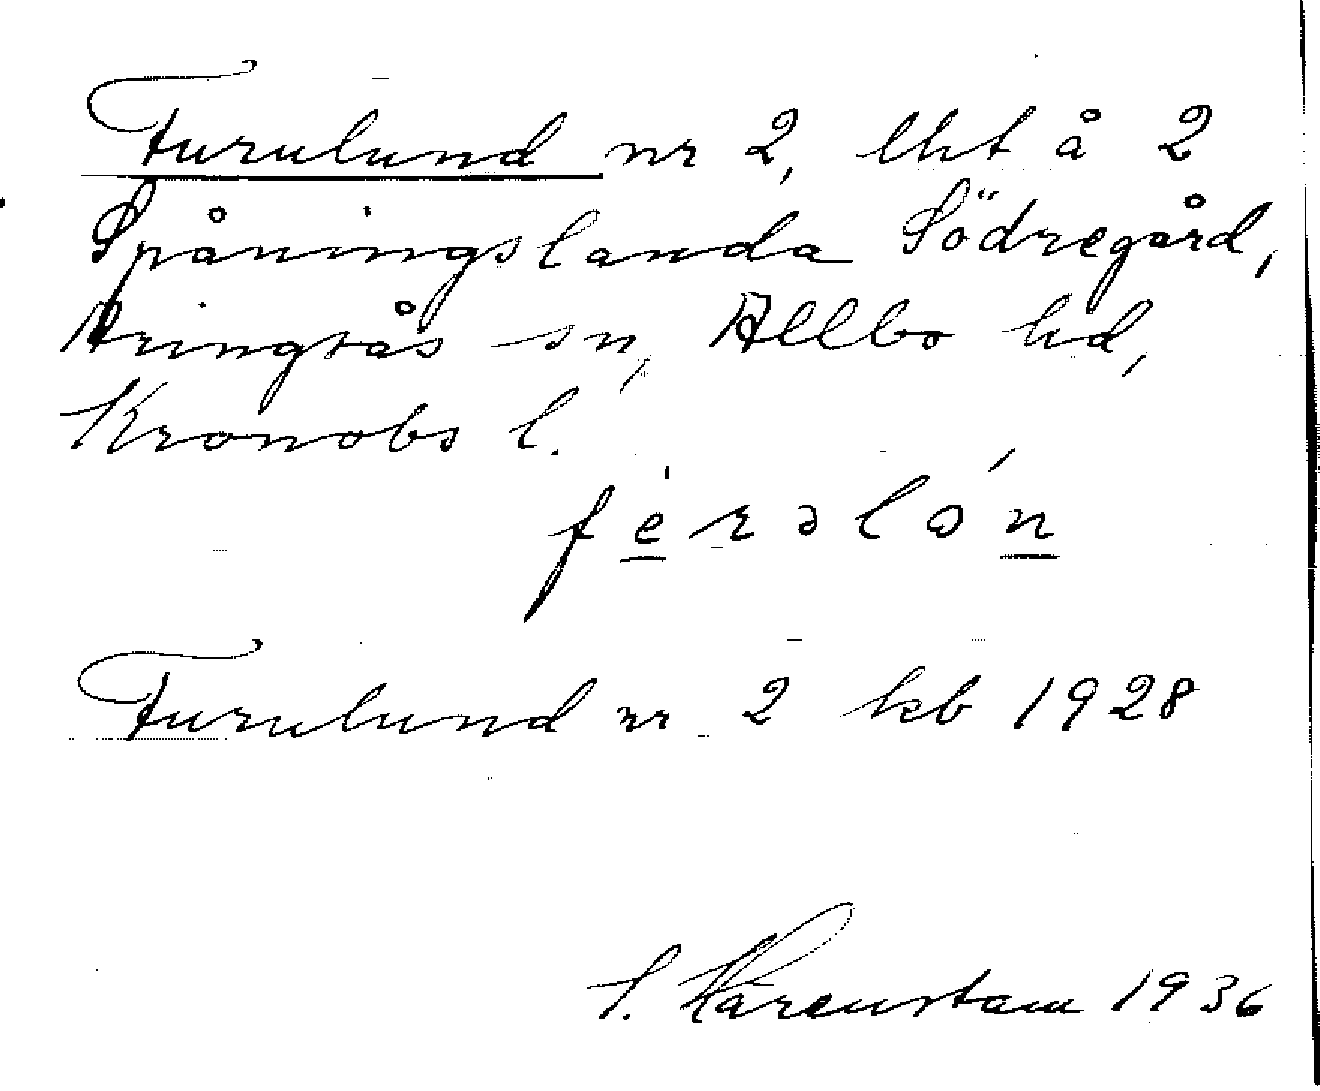 Furulund nr 2, lht å 2
Spåningslanda Södregård,
Aringsås sn, Allbo hd,
Kronobs l.
fèrəlón
Furulund nr 2 kb 1928
S. Kärenstam 1936